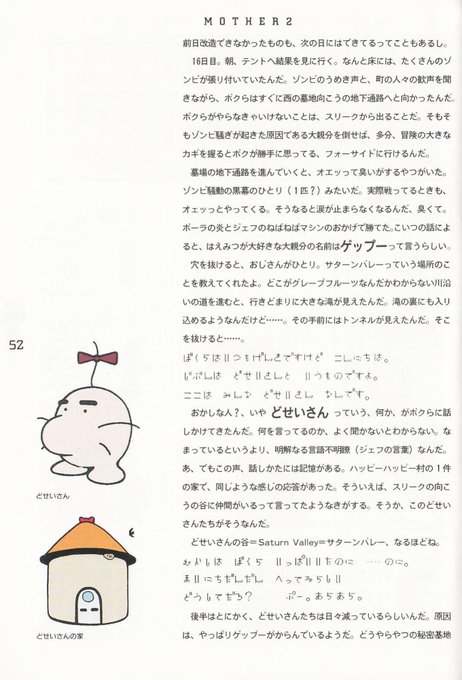 MOTHER2
前日改造できなかったものも、次の日にはできてるってこともあるし。
16日目。朝、テントへ結果を見に行く。なんと床には、たくさんのゾ
ンビが張り付いていたんだ。ゾンビのうめき声と、町の人々の歓声を聞
きながら、ボクらはすぐに西の墓地向こうの地下通路へと向かったんだ。
ボクらがやらなきゃいけないことは、スリークから出ることだ。そもそ
もゾンビ騒ぎが起きた原因である大親分を倒せば、多分、冒険の大きな
カギを握るとボクが勝手に思ってる、フォーサイドに行けるんだ。
墓場の地下通路を進んでいくと、オエッって臭いがするやつがいた。
ゾンビ騒動の黒幕のひとり（1匹？）みたいだ。実際戦ってるときも、
オェッっとやってくる。そうなると涙が止まらなくなるんだ、臭くて。
ポーラの炎とジェフのねばねばマシンのおかげで勝てた。こいつの話によ
ると、はえみつが大好きな大親分の名前はゲップーって言うらしい。
穴を抜けると、おじさんがひとり。サターンバレーっていう場所のこ
とを教えてくれたよ。どこがグレープフルーツなんだかわからない川沿
いの道を進むと、行きどまりに大きな滝が見えたんだ。滝の裏にも入り
込めるようなんだけど……。その手前にはトンネルが見えたんだ。そこ
を抜けると……。
ぼくらは いつもげんきですけど こんにちは。
じぶんは どせいさんと いうものですよ。
ここは みんな どせいさん なんです。
おかしな人？、いや どせいさん っていう、何か、がボクらに話
しかけてきたんだ。何を言ってるのか、よく聞かないとわからない。な
まっているというより、明解なる言語不明瞭（ジェフの言葉）なんだ。
あ、でもこの声、話しかたには記憶がある。ハッピーハッピー村の1件
の家で、同じような感じの応答があった。そういえば、スリークの向こ
うの谷に仲間がいるって言ってたようなきがする。そうか、このどせい
さんたちがそうなんだ。
どせいさんの谷＝Saturn Valley＝サターンバレー、なるほどね。
むかしは ぼくら いっぱいいたのに ……のに。
まいにちだんだん へってねらもい
どうしてだろ？ ぷー。あらあら。
後半はとにかく、どせいさんたちは日々減っているらしいんだ。原因
は、やっぱりゲップーがからんでいるようだ。どうやらやつの秘密基地
52
どせいさん
どせいさんの家